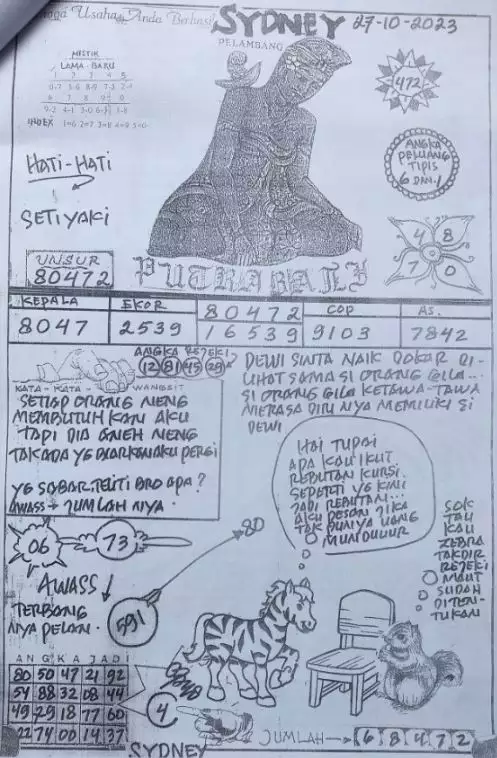 Usaha Anda Berhasil
SYDNEY 27-10-2023
PELAMBANG
MISTIK
LAMA - BARU
1 2 3 4 5
6 7 8 9 0
INDEX 1=6 2=7 3=8 4=9 5=0
472
HATI-HATI
SETIYAKI
ANGKA
PELUANG
TIPIS
6 DAN 1
UNSUR
80472
4 8
7 0
PUTRA BALI
KEPALA EKOR 80472 COP AS.
8047 2539 16539 9103 7842
ANGKA REJEKI
12 81 45 29
KATA - KATA - WANGSIT
SETIAP ORANG MENG
MEMBUTUH KAN AKU
TAPI DIA ANEH MENG
TAKADA YG BIARKAN AKU PERGI
YG SABAR TELITI BRO APA?
AWASS JUMLAH NYA.
DEWI SINTA NAIK DOKAR DI-
LIHAT SAMA SI ORANG GILA...
SI ORANG GILA KETAWA-TAWA
MERASA DIRI NYA MEMILIKI SI
DEWI
HAI TUPAI
APA KAU IKUT
REBUTAN KURSI.
SEPERTI YG KINI
JADI REBUTAN...
AKU PESAN JIKA
TAK PUNYA UANG
MUNDUUUR
SOK
TAU
KAU
ZEBRA
TAKDIR
REJEKI
MAUT
SUDAH
DITEN-
TUKAN
06 73
80
AWASS
TERBANG
NYA PELAN.
591
ANGKA JADI
80 50 47 21 92
54 88 32 08 44
49 29 18 77 60
22 74 00 14 37
4
JUMLAH 6 8 4 7 2
SYDNEY